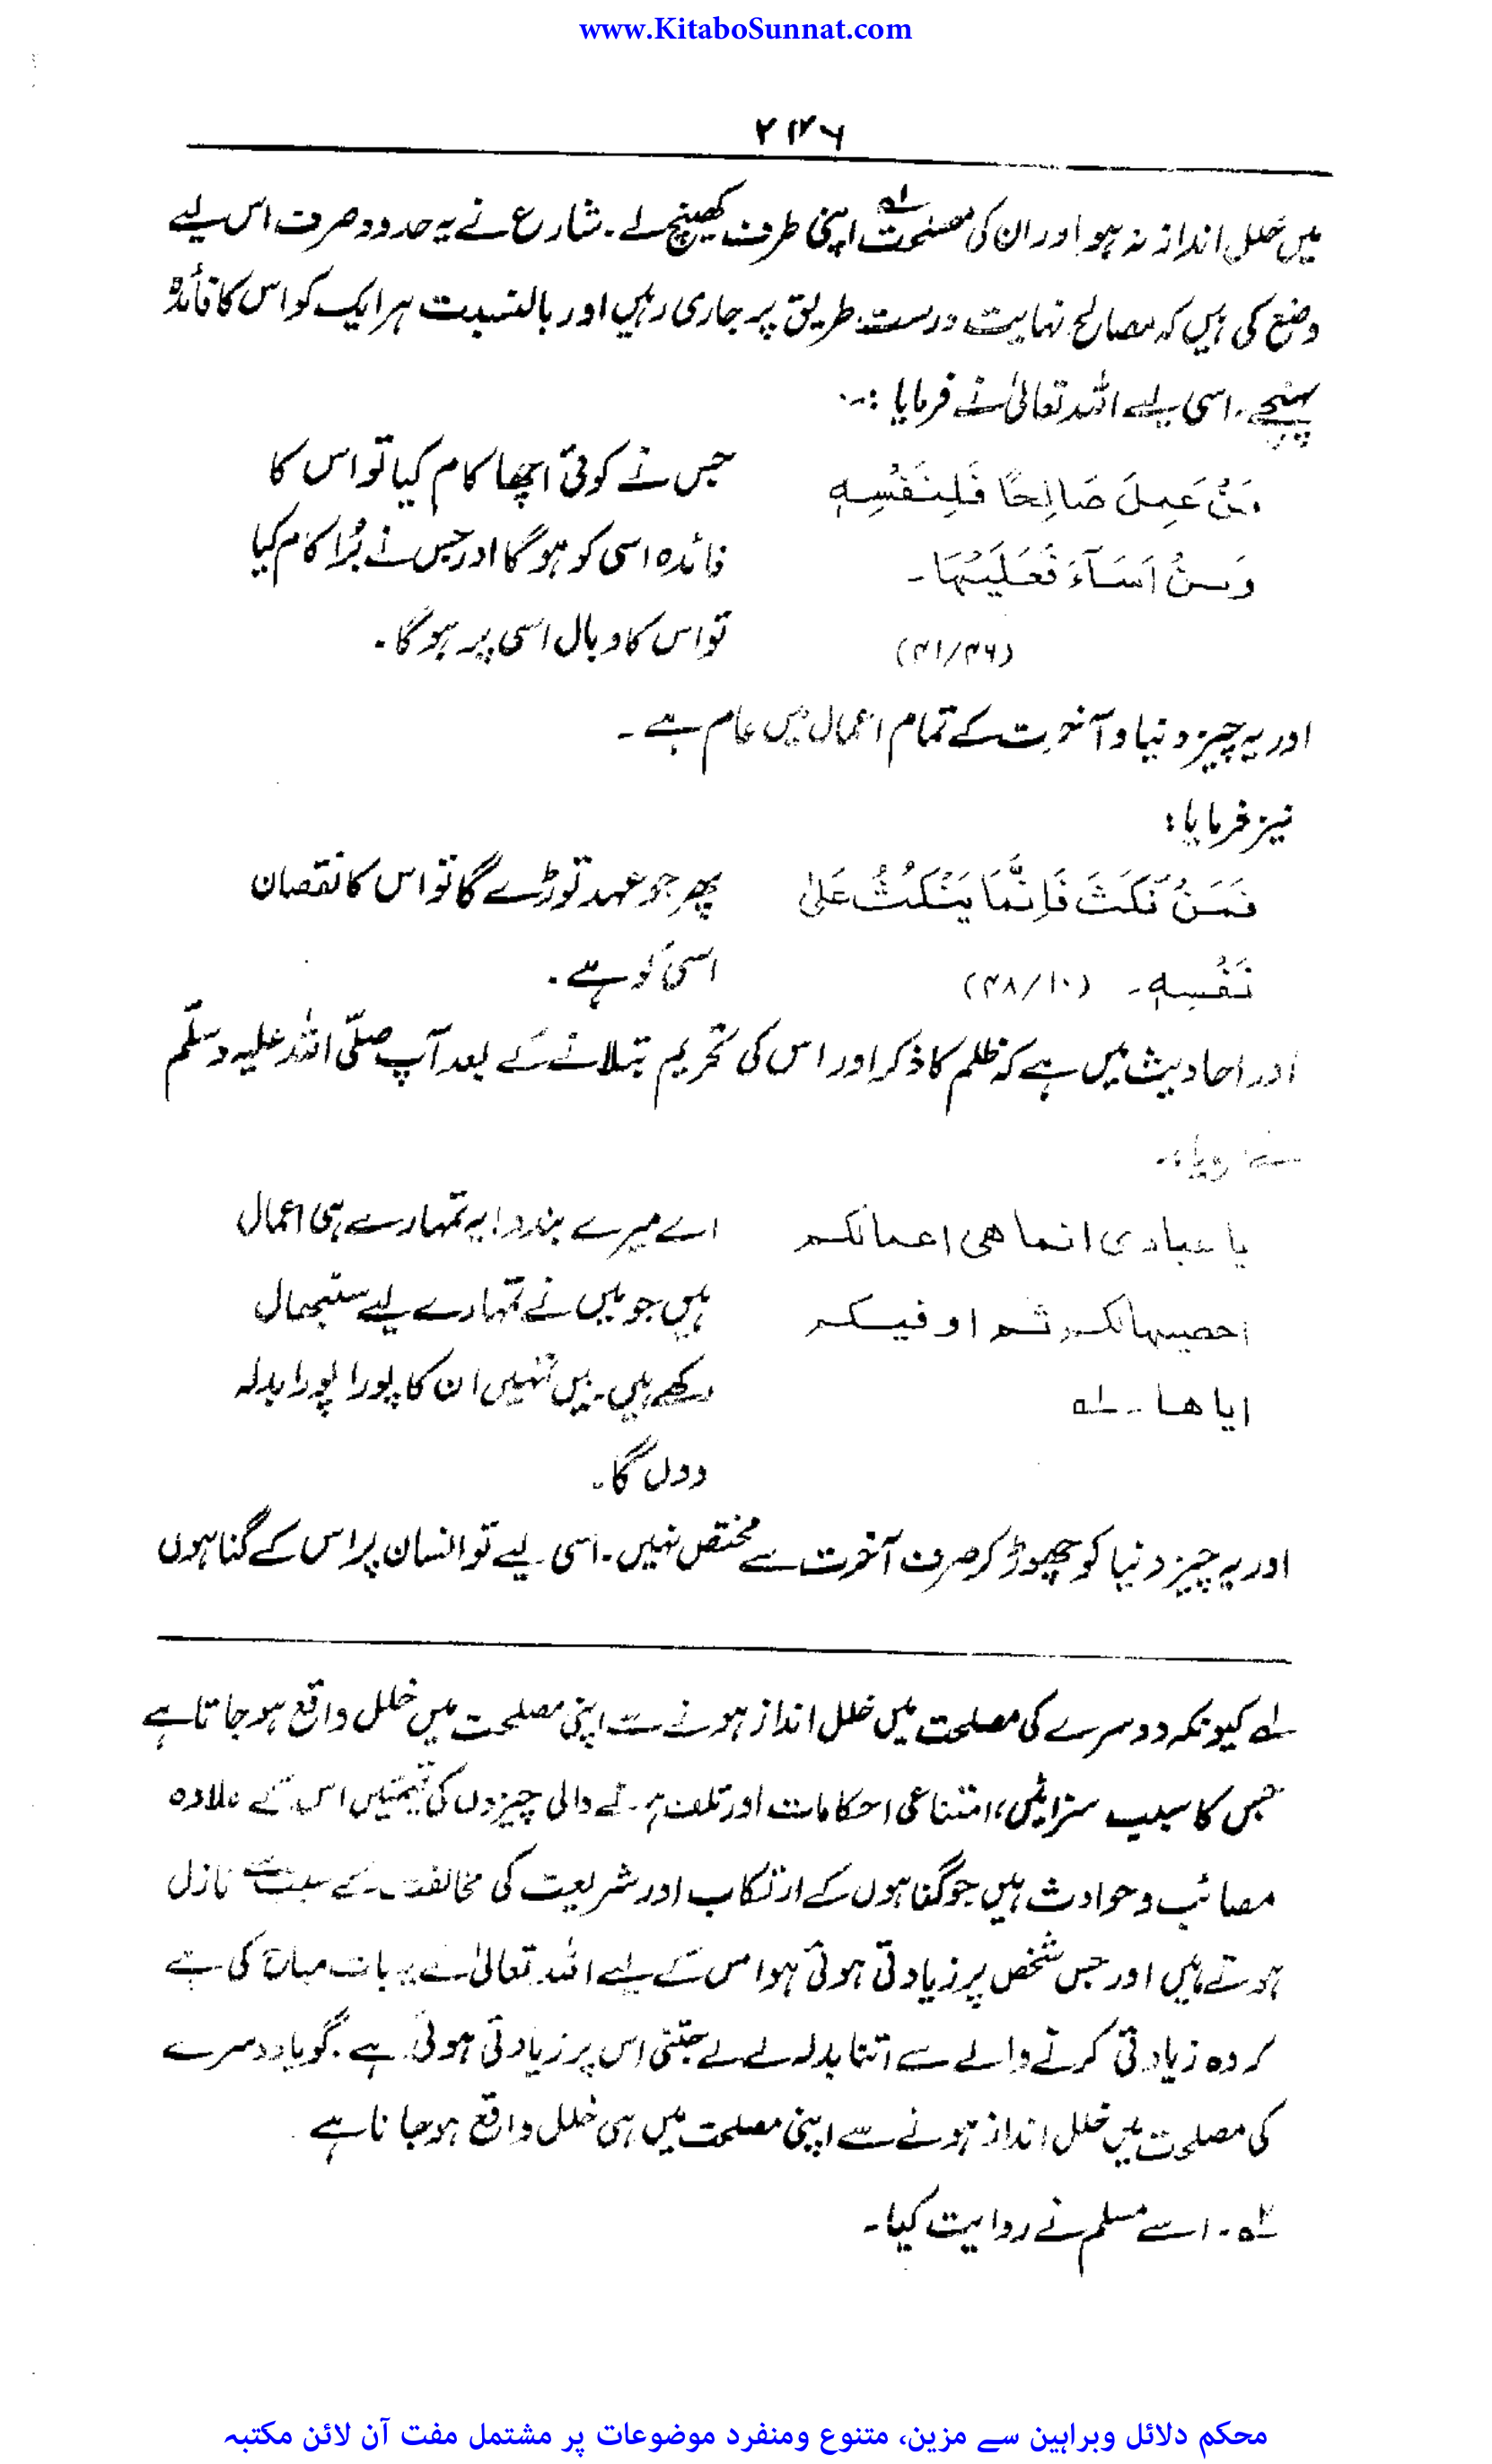 www.KitaboSunnat.com
۲۴۶
میں خلل انداز نہ ہو اور ان کی مصلحت لہ اپنی طرف کھینچ لے۔ شارع نے یہ حدود صرف اس لیے
وضع کی ہیں کہ مصالح نہایت درست طریق پر جاری رہیں اور بالنسبت ہر ایک کو اس کا فائدہ
پہنچے۔ اسی لیے اللہ تعالیٰ نے فرمایا :۔
مَنْ عَمِلَ صَالِحًا فَلِنَفْسِهٖ
وَمَنْ اَسَآءَ فَعَلَيْهَا۔
(۴۱/۴۶)
جس نے کوئی اچھا کام کیا تو اس کا
فائدہ اسی کو ہوگا اور جس نے بُرا کام کیا
تو اس کا وبال اسی پر ہوگا۔
اور یہ چیز دنیا و آخرت کے تمام اعمال میں عام ہے۔
نیز فرمایا:
فَمَنْ نَّكَثَ فَاِنَّمَا يَنْكُثُ عَلىٰ
نَفْسِهٖ۔ (۴۸/۱۰)
پھر جو عہد توڑے گا تو اس کا نقصان
اسی کو ہے۔
اور احادیث میں ہے کہ ظلم کا ذکر اور اس کی تحریم بتلانے کے بعد آپ صلّی اللہ علیہ وسلّم
نے
یا عبادی انما هی اعمالکم
احصیها لکم ثم اوفیکم
ایاها۔ ٢ه
اے میرے بندو! یہ تمہارے ہی اعمال
ہیں جو میں نے تمہارے لیے سنبھال
رکھے ہیں۔ میں تمہیں ان کا پورا پورا بدلہ
دوں گا۔
اور یہ چیز دنیا کو چھوڑ کر صرف آخرت سے مختص نہیں۔ اسی لیے تو انسان پر اس کے گناہوں
لہ کیونکہ دوسرے کی مصلحت میں خلل انداز ہونے سے اپنی مصلحت میں خلل واقع ہو جاتا ہے
جس کا سبب سزائیں، امتناعی احکامات اور تلف ہونے والی چیزوں کی قیمتیں اس کے علاوہ
مصائب و حوادث ہیں جو گناہوں کے ارتکاب اور شریعت کی مخالفت کے سبب سے نازل
ہوتے ہیں اور جس شخص پر زیادتی ہوئی ہو اس کے لیے اللہ تعالیٰ نے یہ بات مباح کی ہے
کہ وہ زیادتی کرنے والے سے اتنا بدلہ لے لے جتنی اس پر زیادتی ہوئی ہے۔ گویا دوسرے
کی مصلحت میں خلل انداز ہونے سے اپنی مصلحت میں ہی خلل واقع ہو جاتا ہے
٢ه۔ اسے مسلم نے روایت کیا۔
محکم دلائل وبراہین سے مزین، متنوع ومنفرد موضوعات پر مشتمل مفت آن لائن مکتبہ